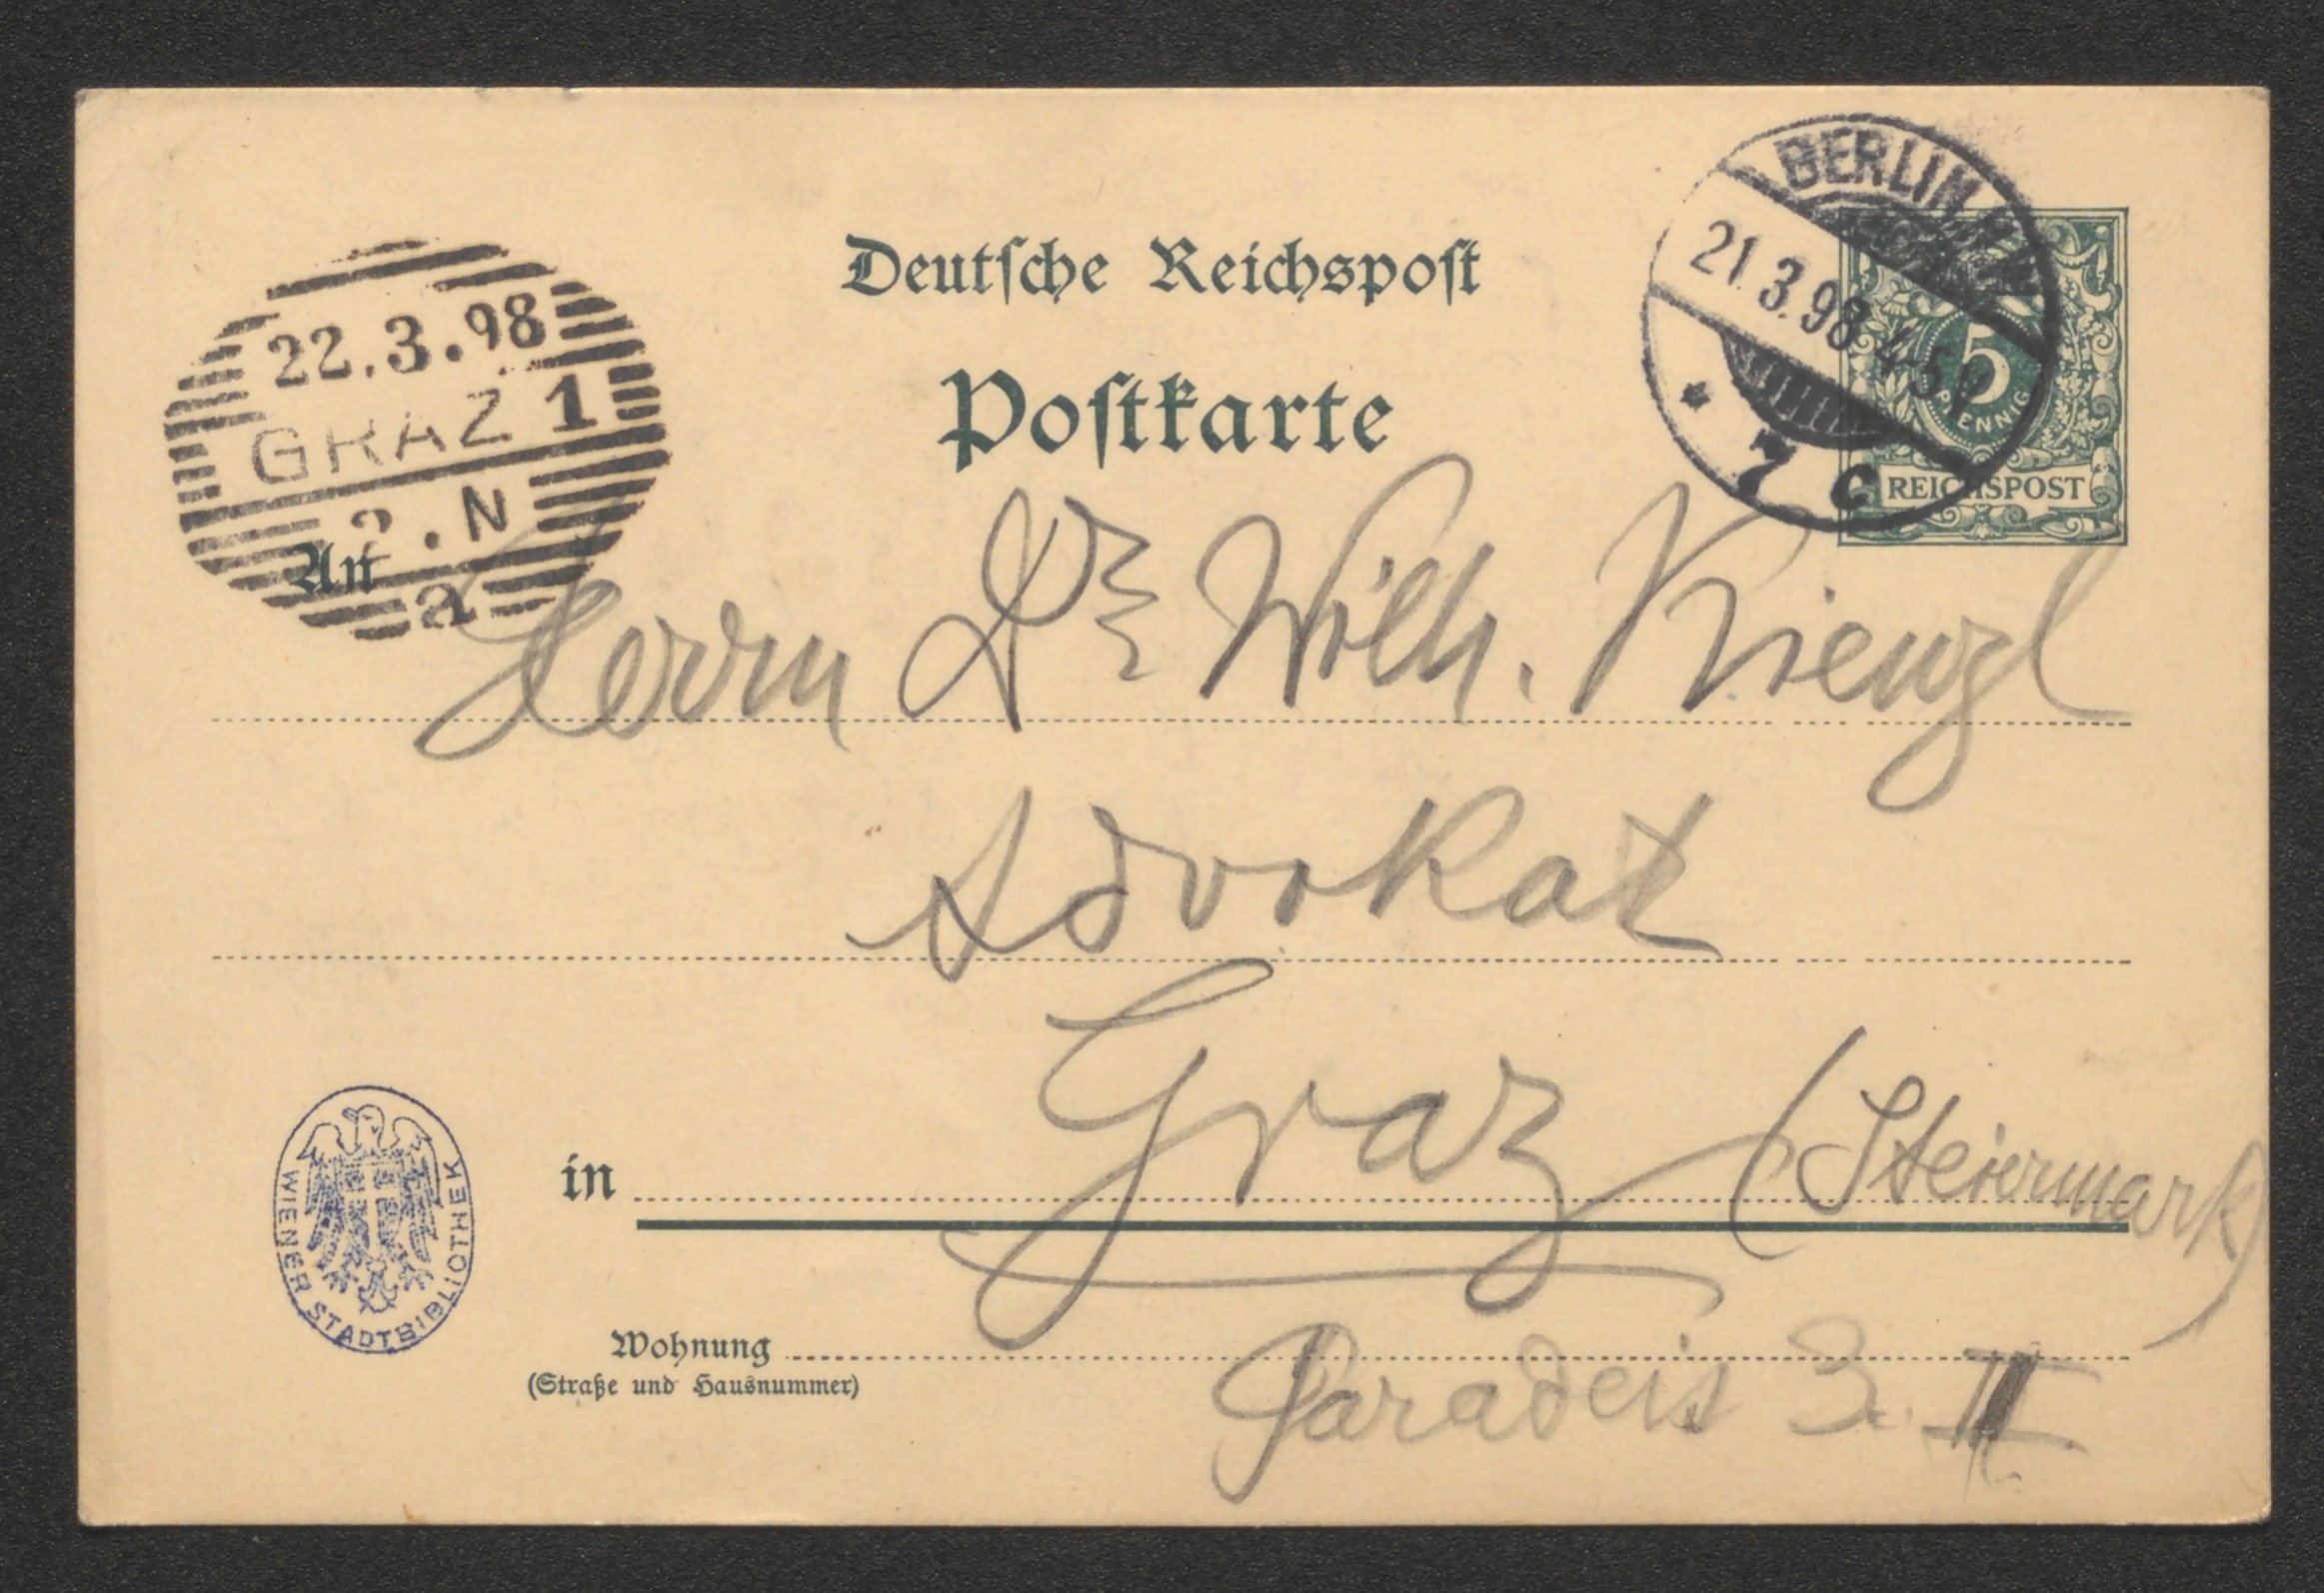 Deutsche Reichspost
Postkarte
BERLIN
21.3.98 4-5
7 c
5
PFENNIG
REICHSPOST
22.3.98
GRAZ 1
2.N
a
An
Herrn Dr Wilh. Kienzl
Advokat
in Graz (Steiermark)
Wohnung Paradeis 3. II
(Straße und Hausnummer)
WIENER STADTBIBLIOTHEK